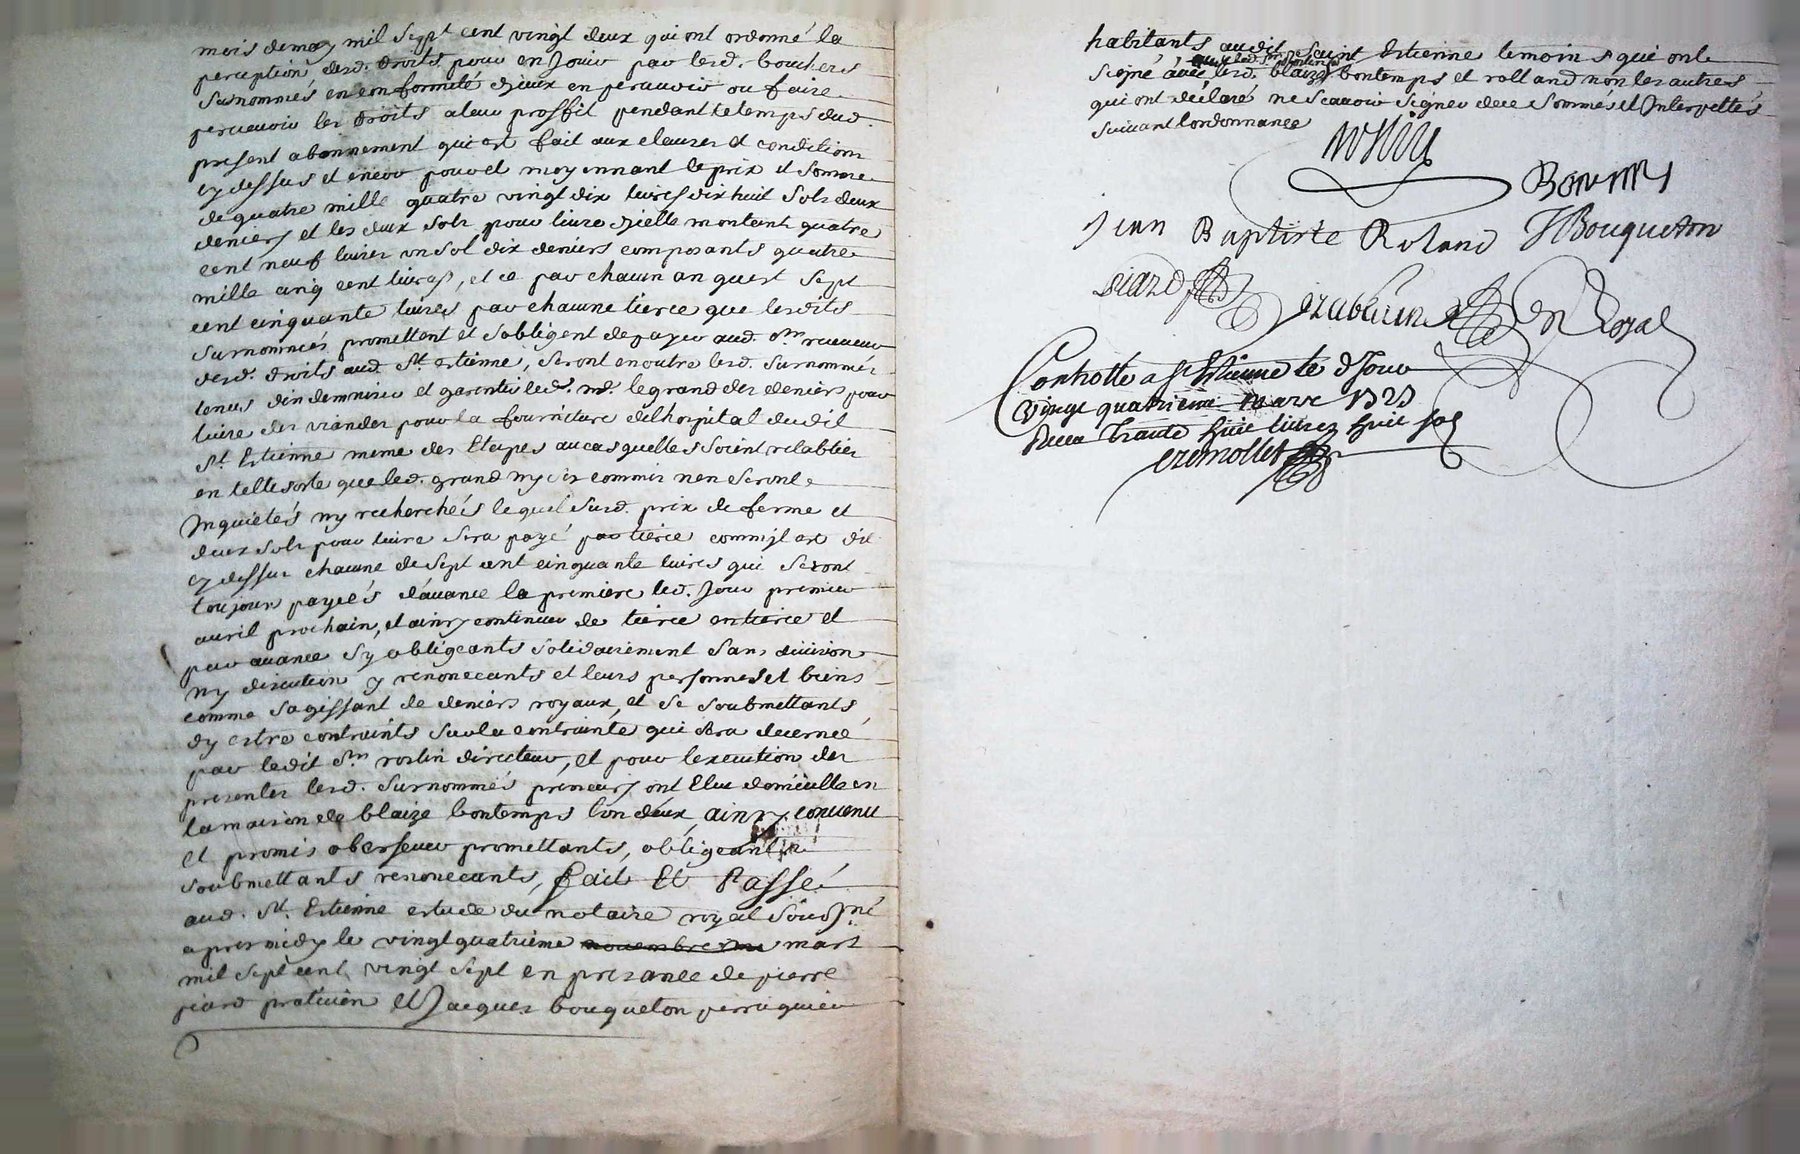 mois de may mil sept cent vingt deux qui ont ordonné la
perception desd. droits pour en Jouir par lesd. bouchers
surnommés en conformité d'jceux en percuvoir ou faire
percuvoir les droits a leur proffit pendant le temps dud.
present abonnement qui est fait aux clauses et conditions
cy dessus et encor pour et moyennant le prix et somme
de quatre mille quatre vingt dix livres dix huit sols deux
deniers et les deux sols pour livre d'jcelle montant quatre
cent neuf livres un sol dix deniers composants quatre
mille cinq cent livres, et ce par chacun an quest sept
cent cinquante livres par chacune tierce que lesdits
surnommés promettent et sobligent de payer aud. Sr receveur
desd. droits aud. St. Estienne, seront en outre lesd. surnommés
tenus d'indemniser et garentir led. Mr. legrand des deniers pour
livre des viandes pour la fourniture de lhospital dudit
St. Estienne meme des Etapes au cas quelles soient retablies
en telle sorte que led. grand ny ses commis n'en seront
Inquietés ny recherchés lequel susd. prix de ferme et
deux sols pour livre sera payé par tierce comm'jl est dit
cy dessus chacune de sept cent cinquante livres qui seront
toujours payées d'avance la premiere led. Jour premier
avril prochain, et ainsy continuer de tierce en tierce et
par avance s'y obligeants solidairement sans division
ny discution y renonceants et leurs personnes et biens
comme s'agissant de deniers royaux, et se soubmettants
d'y estre contraints sur la contrainte qui sera decernée
par ledit Sr roslin directeur, et pour l'execution des
presentes lesd. surnommés preneurs ont Elu domicille en
la maison de blaize bontemps l'un deux, ainsy convenu
et promis observer promettants, obligeants
soubmettants renonceants, fait Et Passé
aud. St. Estienne estude du notaire royal sousgné
apres midy le vingt quatrieme mars
mil sept cent vingt sept en presance de pierre
piard praticien et Jacques bouqueton perruquier
habitants audit saint Estienne temoins qui ont
signé avec lesd. blaize bontemps et rolland non les autres
qui ont déclaré ne scavoir signer de ce sommés et Interpellés
suivant lordonnance
Jean Baptiste Roland JBouqueton
piard
nr Royal
Controlle a St Estienne le d Jour
vingt quatrieme mars 1727
Receu trante huit livres huit sols